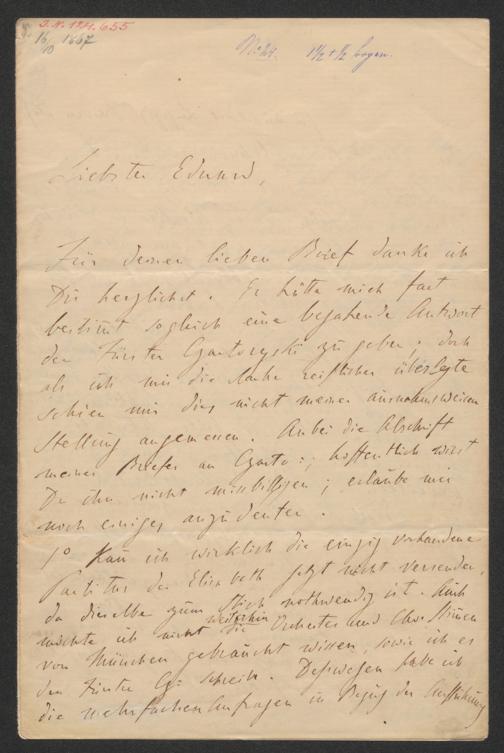 J.N. 124.655
16/10 1867
No 24. 1 1/2 + 1/2 bogen.
Liebster Eduard,
Für deinen lieben Brief danke ich
Dir herzlichst. Er hätte mich fast
bestimt sogleich eine bejahende Antwort
den Fürsten Czartoryski zu geben; doch
als ich mir die Sache reiflicher überlegte
schien mir dies nicht meiner ausnahmsweisen
Stellung angemessen. Anbei die Abschrift
meines Briefes an Czarto:; hoffentlich wirst
Du ihn nicht missbilligen; erlaube mir
noch einiges anzudeuten.
1o Kan ich wirklich die einzig vorhandene
Partitur der Elisabeth jetzt nicht versenden,
da dieselbe zum Stich nothwendig ist. Auch
möchte ich nicht weiterhin die Orchester und Chor Stimen
von München gebraucht wissen, sowie ich es
den Fürsten Cz: schreibe. Desswegen habe ich
die mehrfachen Anfragen in Bezug der Aufführung